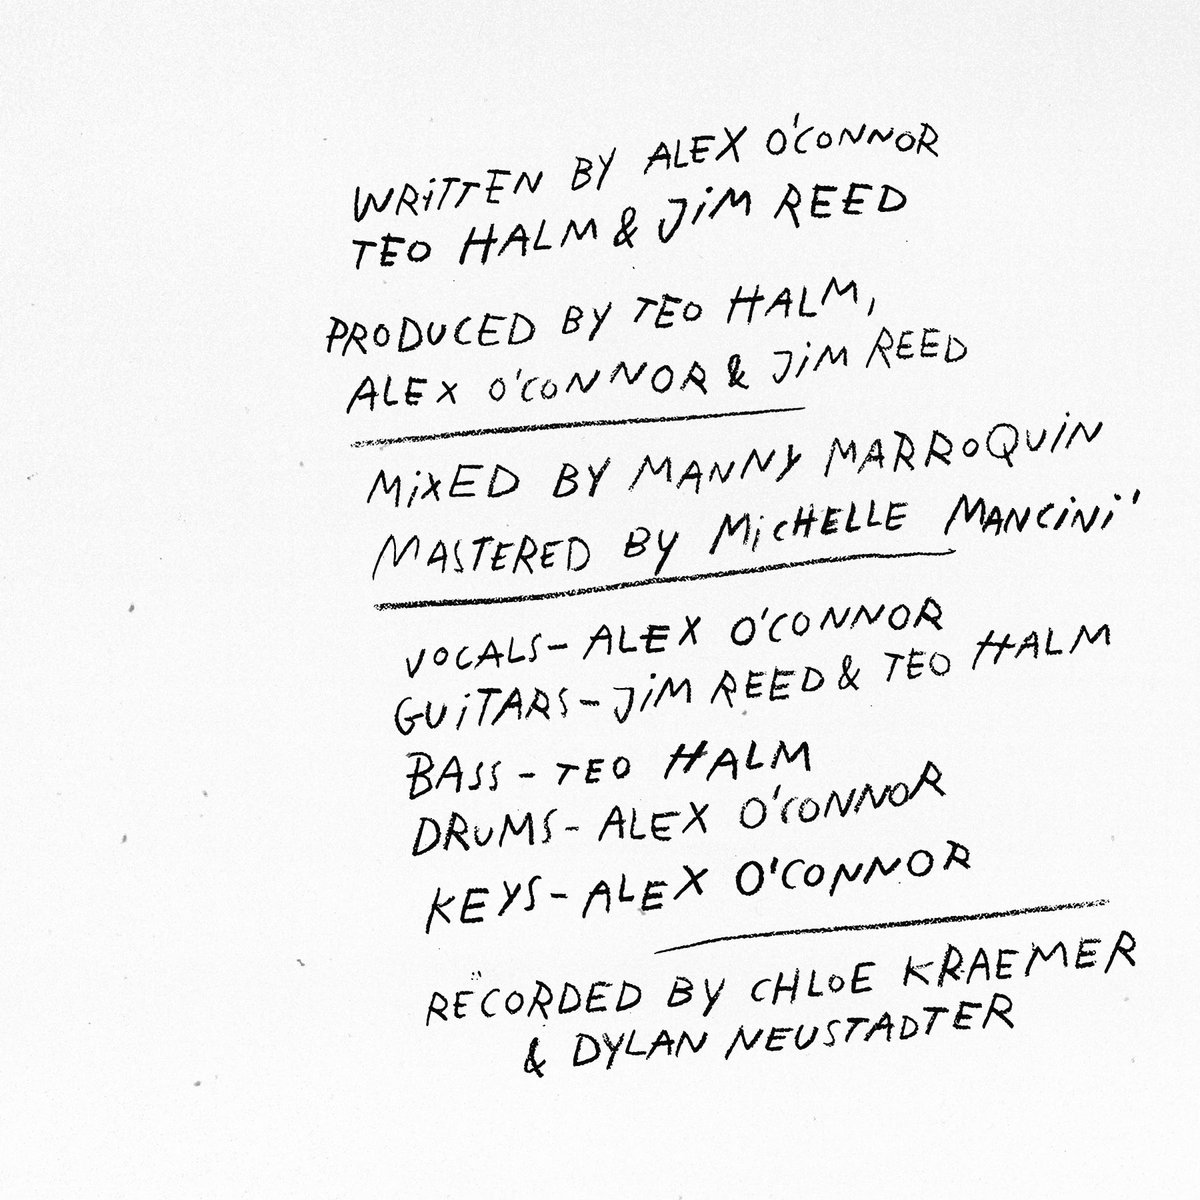 WRiTTEN BY ALEX O'CONNOR
TEO HALM & JiM REED
PRODUCED BY TEO HALM,
ALEX O'CONNOR & JiM REED
MiXED BY MANNY MARROQUiN
MASTERED BY MiCHELLE MANCiNi'
VOCALS- ALEX O'CONNOR
GUiTARS- JiM REED & TEO HALM
BASS - TEO HALM
DRUMS- ALEX O'CONNOR
KEYS- ALEX O'CONNOR
RECORDED BY CHLOE KRAEMER
& DYLAN NEUSTADTER